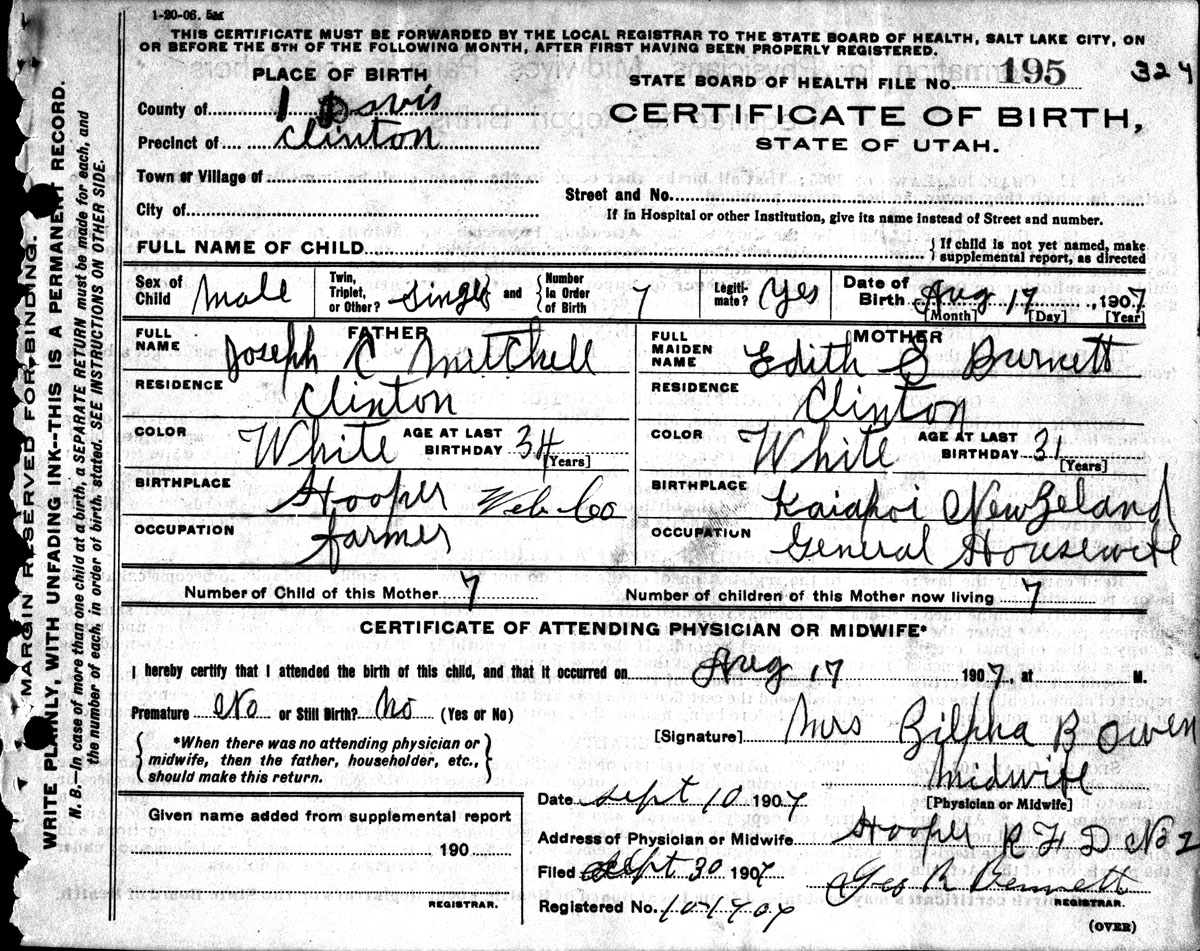 1-20-06. 5M
THIS CERTIFICATE MUST BE FORWARDED BY THE LOCAL REGISTRAR TO THE STATE BOARD OF HEALTH, SALT LAKE CITY, ON
OR BEFORE THE 5TH OF THE FOLLOWING MONTH, AFTER FIRST HAVING BEEN PROPERLY REGISTERED.
PLACE OF BIRTH
STATE BOARD OF HEALTH FILE NO. 195 324
County of Davis
CERTIFICATE OF BIRTH,
Precinct of Clinton
STATE OF UTAH.
Town or Village of
Street and No.
City of
If in Hospital or other Institution, give its name instead of Street and number.
FULL NAME OF CHILD
{ If child is not yet named, make
supplemental report, as directed
Sex of Child Male Twin, Triplet, or Other? Single and { Number in Order of Birth 7 Legiti-mate? Yes Date of Birth Aug 17, 1907
[Month] [Day] [Year]
FATHER
FULL NAME Joseph C Mitchell
RESIDENCE Clinton
COLOR White AGE AT LAST BIRTHDAY 34 [Years]
BIRTHPLACE Hooper Web Co
OCCUPATION farmer
MOTHER
FULL MAIDEN NAME Edith S Burnett
RESIDENCE Clinton
COLOR White AGE AT LAST BIRTHDAY 31 [Years]
BIRTHPLACE Kaiapoi New Zeland
OCCUPATION General Housewife
Number of Child of this Mother 7 Number of children of this Mother now living 7
CERTIFICATE OF ATTENDING PHYSICIAN OR MIDWIFE*
I hereby certify that I attended the birth of this child, and that it occurred on Aug 17 1907, at M.
Premature No or Still Birth? No (Yes or No)
{ *When there was no attending physician or
midwife, then the father, householder, etc.,
should make this return. }
[Signature] Mrs Zilpha B Owen
Midwife
[Physician or Midwife]
Date Sept 10 1907
Address of Physician or Midwife Hooper R F D No 2
Filed Sept 30 1907 Geo R Bennett
REGISTRAR.
Registered No.
(OVER)
Given name added from supplemental report
190
REGISTRAR.
MARGIN RESERVED FOR BINDING.
WRITE PLAINLY, WITH UNFADING INK--THIS IS A PERMANENT RECORD.
N. B.--In case of more than one child at a birth, a SEPARATE RETURN must be made for each, and
the number of each, in order of birth, stated. SEE INSTRUCTIONS ON OTHER SIDE.